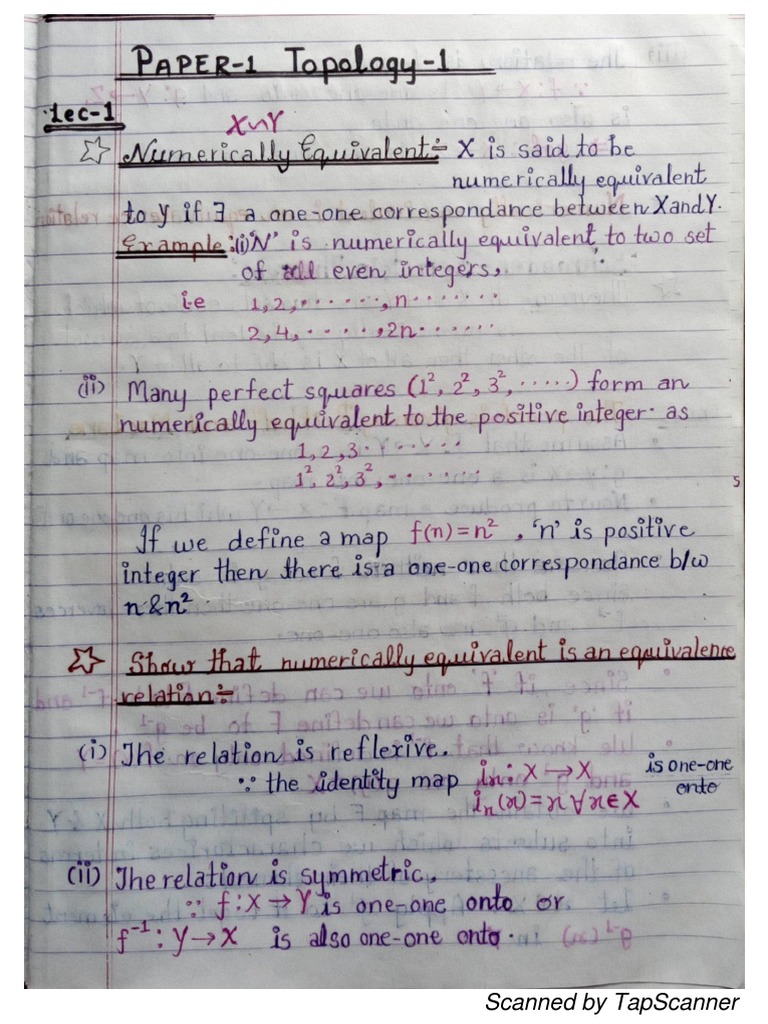 PAPER-1 Topology-1
Lec-1
X~Y
Numerically Equivalent:- X is said to be
numerically equivalent
to Y if ∃ a one-one correspondance between X and Y.
Example:- (i) 'N' is numerically equivalent to two set
of all even integers,
ie 1, 2, ......, n .......
2, 4, ....., 2n ......
(ii) Many perfect squares (1², 2², 3², .....) form an
numerically equivalent to the positive integer. as
1, 2, 3 ......
1², 2², 3², .......
5
If we define a map f(n) = n², 'n' is positive
integer then there is a one-one correspondance b/w
n & n².
Show that numerically equivalent is an equivalence
relation:-
(i) The relation is reflexive.
∵ the identity map iₓ : X → X is one-one
iₓ(x) = x ∀ x ∈ X onto
(ii) The relation is symmetric.
∵ f : X → Y is one-one onto or
f⁻¹ : Y → X is also one-one onto.
Scanned by TapScanner